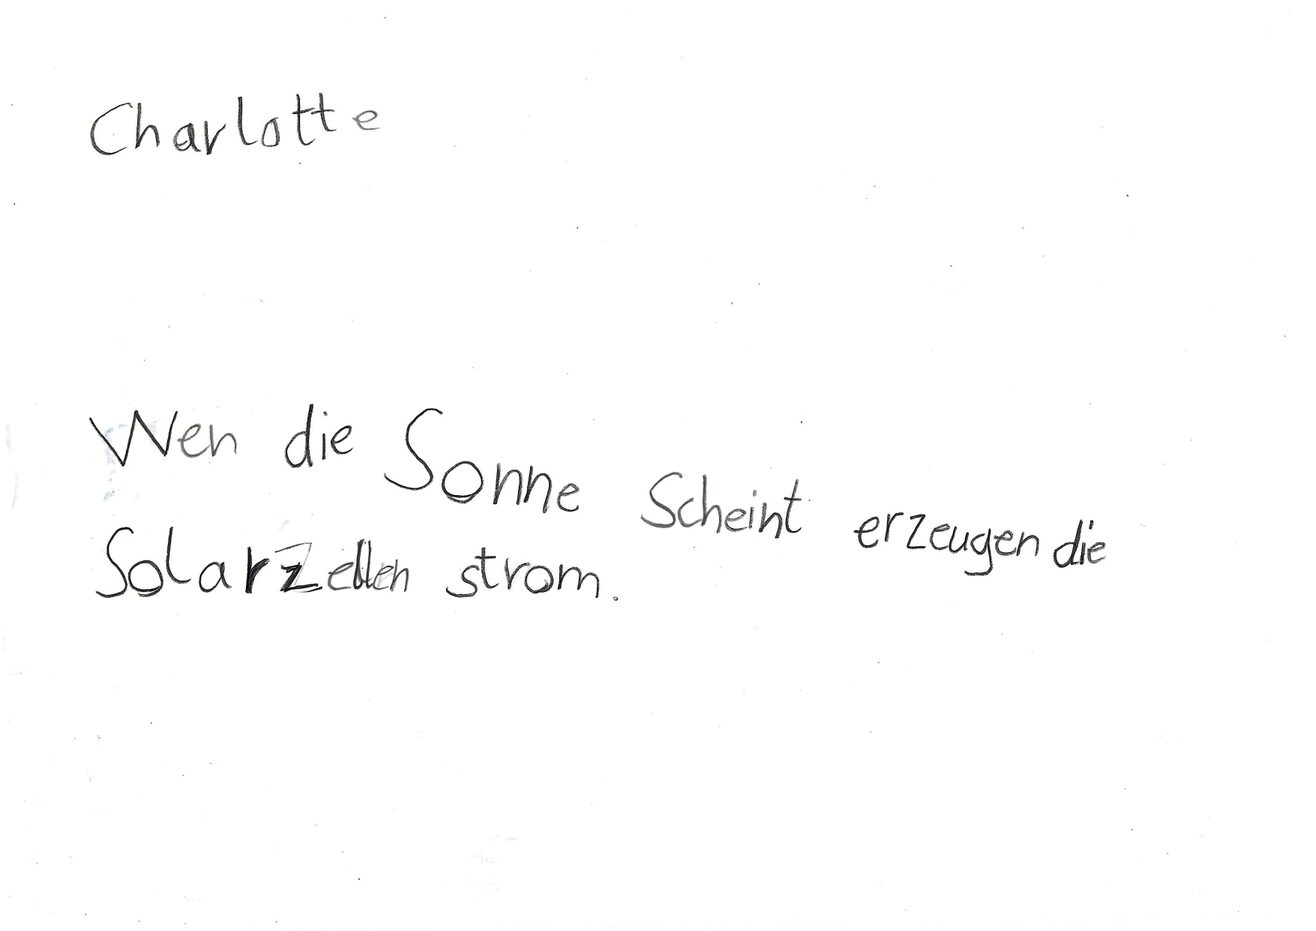 Charlotte
Wen die Sonne Scheint erzeugen die
Solarzellen strom.